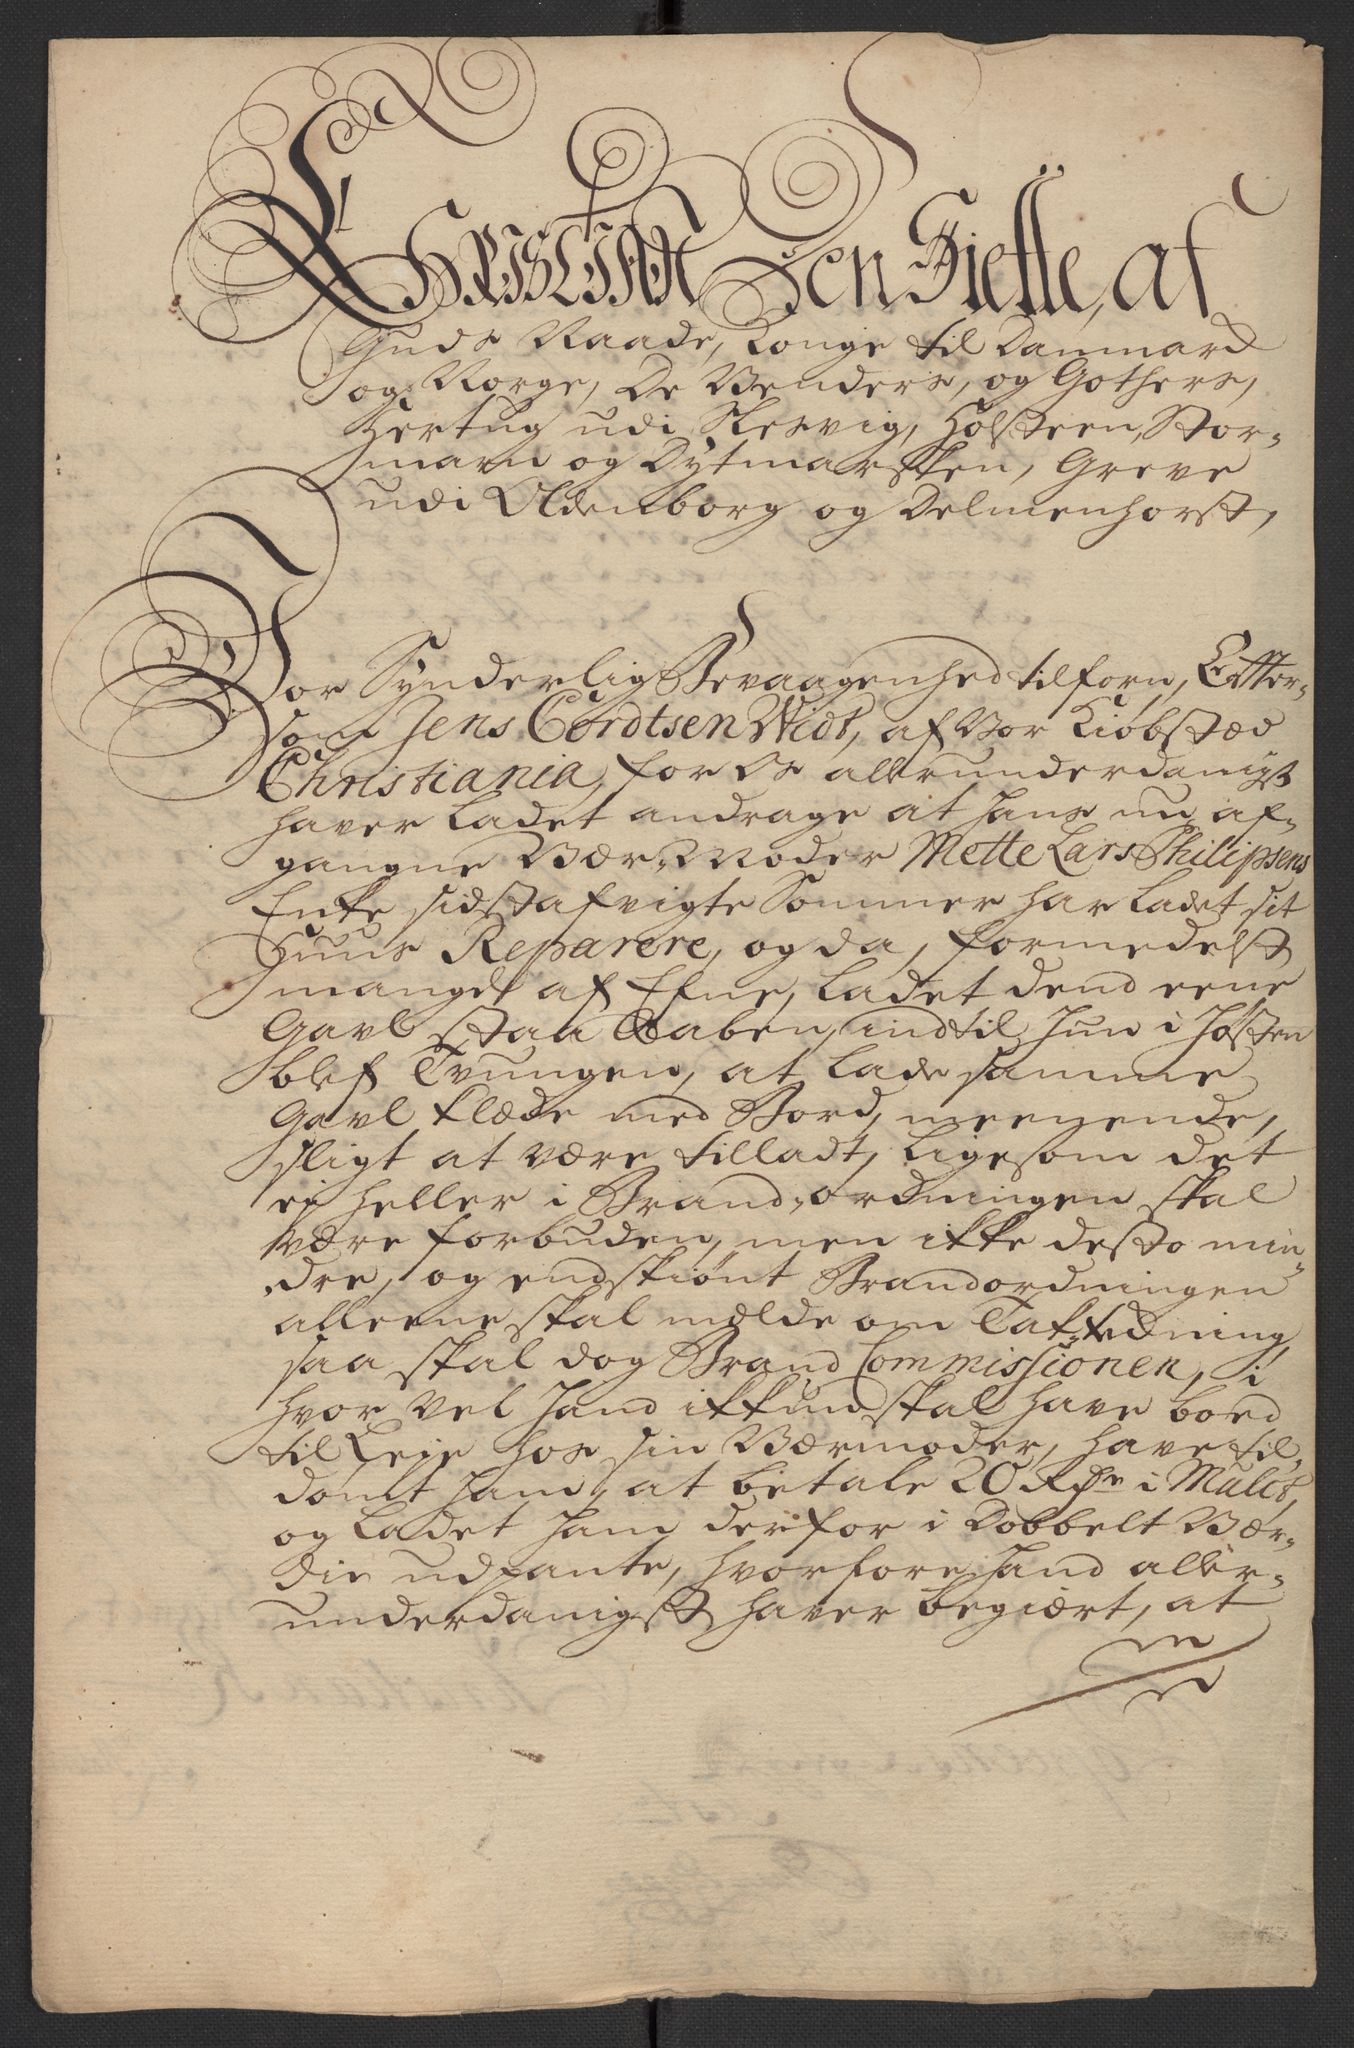 CHRISTIAN den Siette, af
Guds Naade, Konge til Danmarck
og Norge, De Venders, og Gothers,
Hertug udi Slesvig, Holsteen, Stor-
marn og Dytmarsken, Greve
udi Oldenborg og Delmenhorst,
Vor Synderlig Bevaagenhed tilforn, Efter-
som Jens Cordtsen Widt, af Vor Kiøbstæd
Christiania, for Os allerunderdanigst
haver ladet andrage at hans nu af-
gangne Vær-Moder Mette Lars Philipsens
Enke sidstafvigte Sommer har ladet sit
Huus Reparere, og da, formedelst
mangel af Efne, ladet dend eene
Gavl staa aaben, indtil hun i høsten
blef Tvungen, at lade samme
Gavl klæde med Bord, meenende,
sligt at være tilladt, ligesom det
ej heller i Brand-ordningen skal
være forbuden, men ikke desto min-
dre, og endskiønt Brandordningen
alleene skal mælde om Taktedning,
saa skal dog Brand Commissionen, i
hvor vel hand ikkun skal have boed
til Leje hos sin Værmoder, have til-
dømt ham, at betale 20 Rdr i Mulct,
og ladet ham derfor i Dobbelt Vær-
die udpante, hvorfore hand aller-
underdanigst haver begiært, at